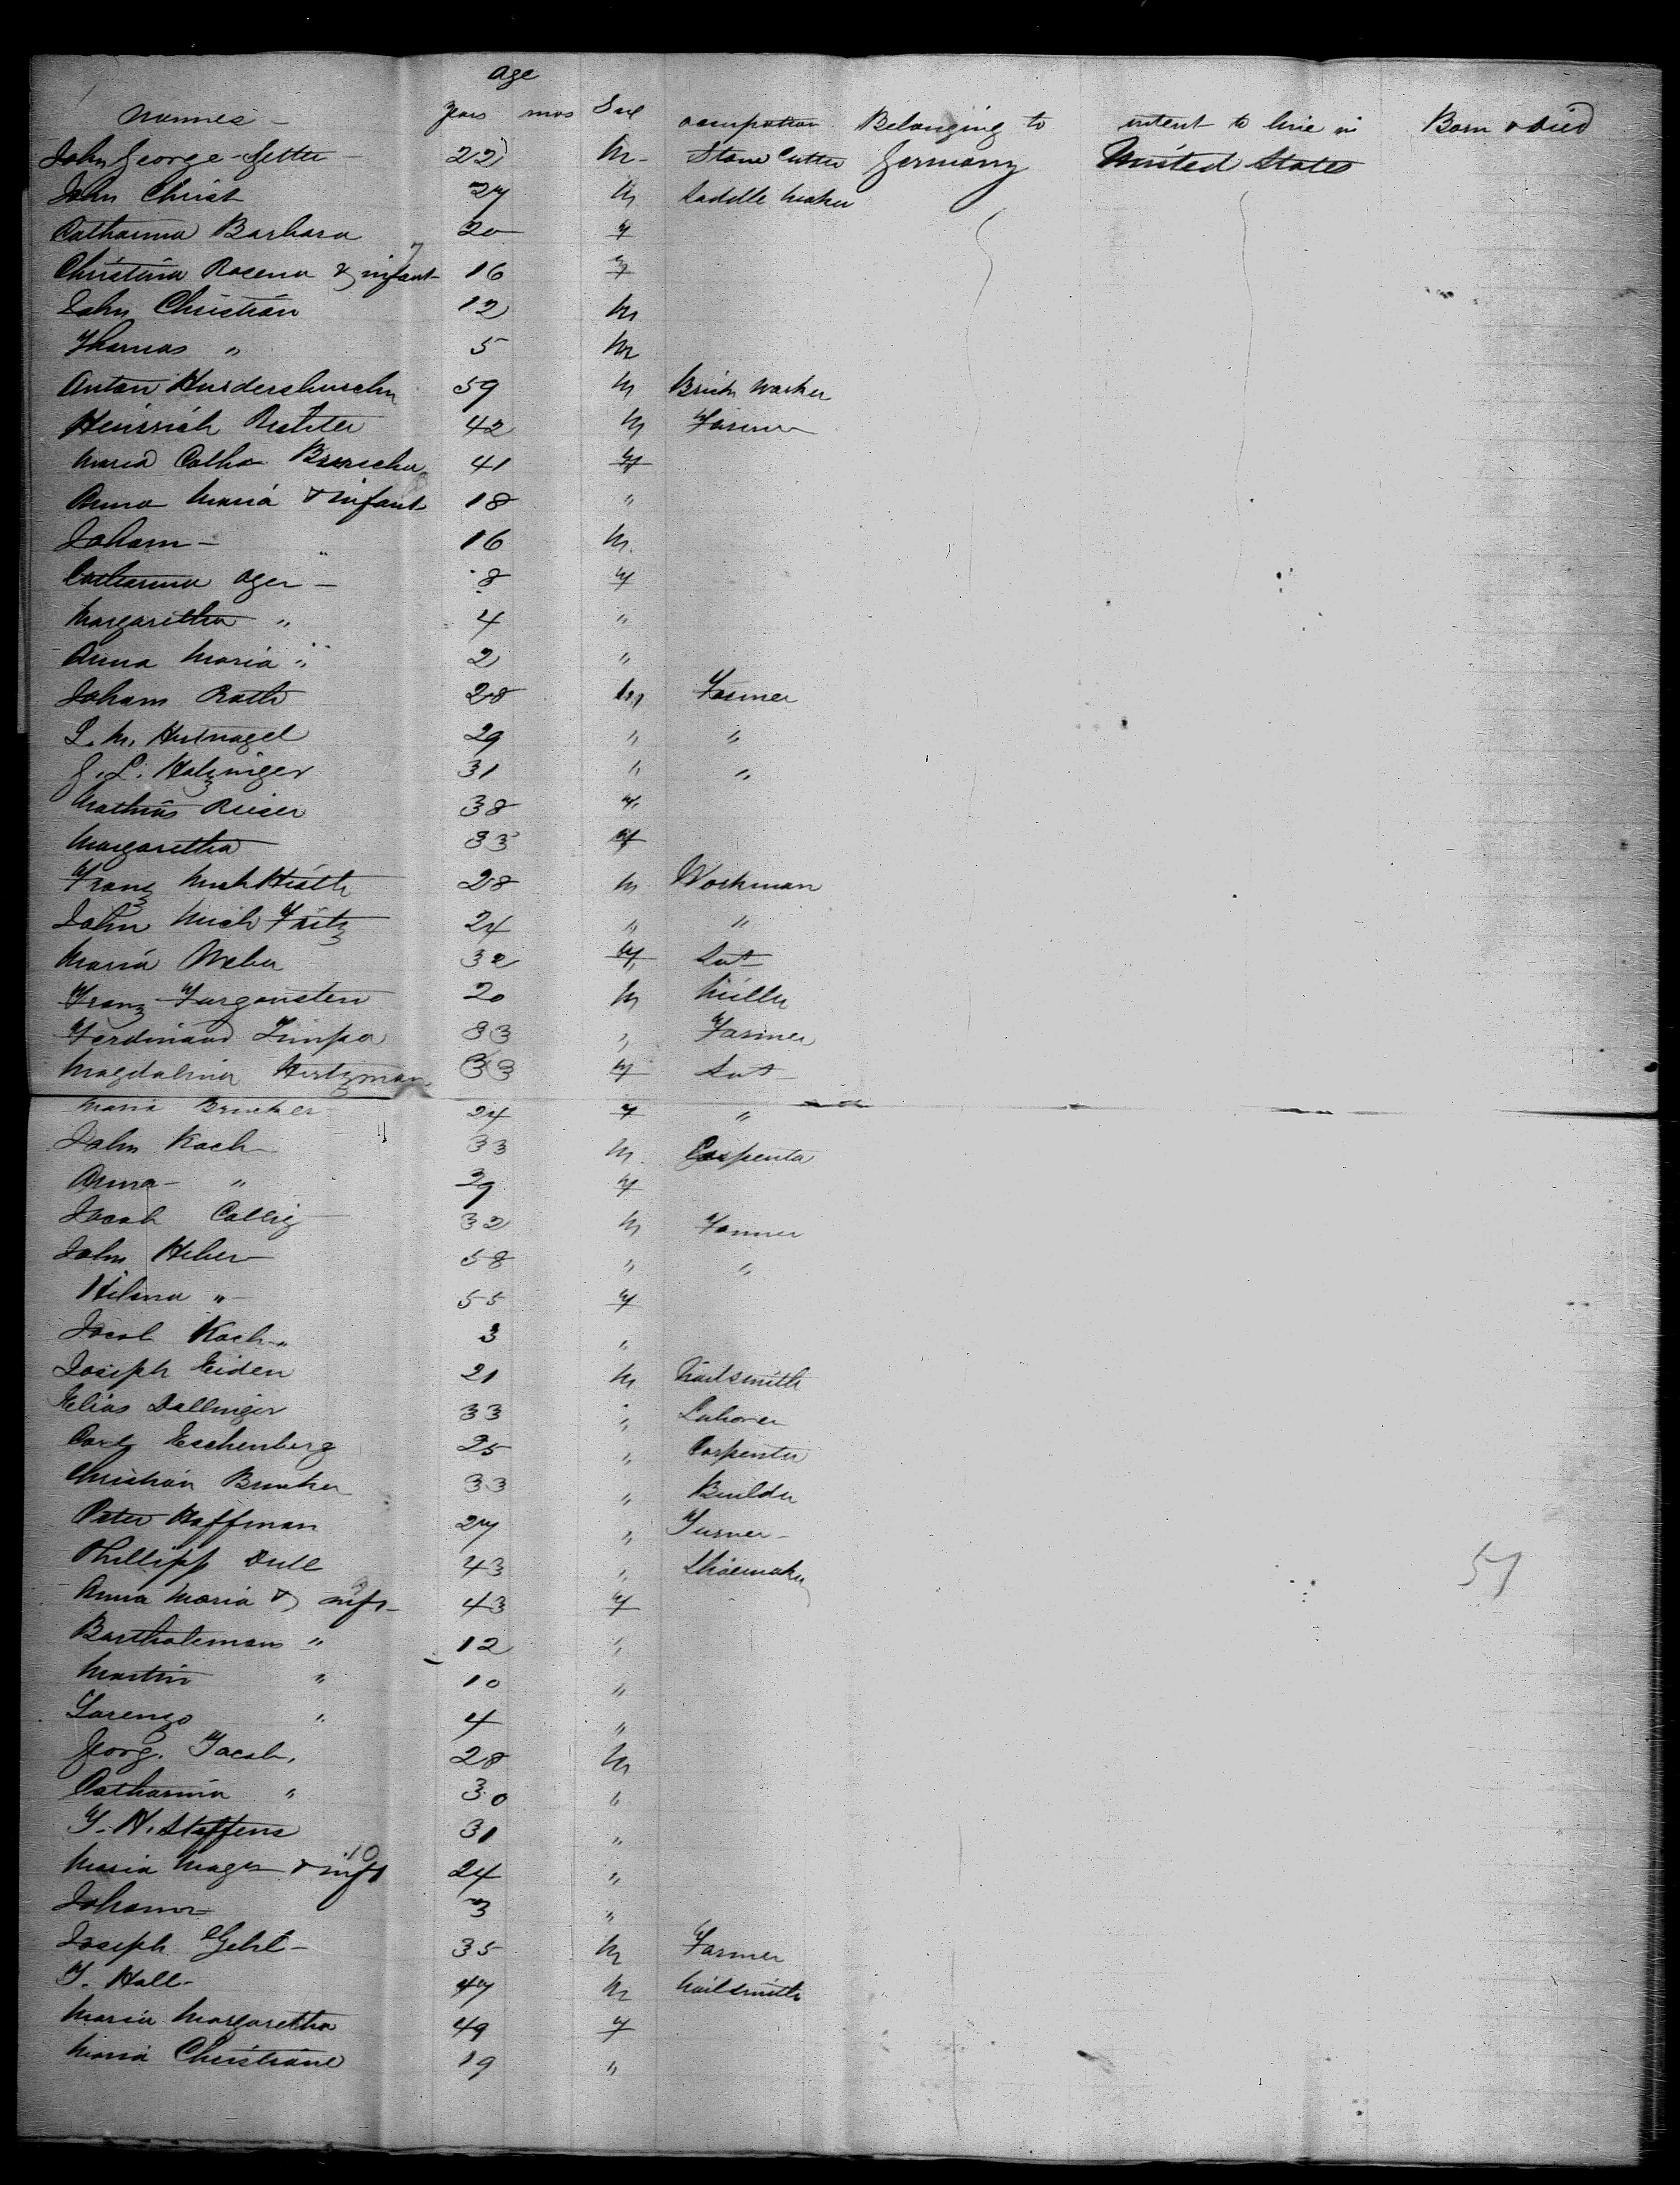 Age
Names - Years mos Sex occupation Belonging to intent to live in Born & died
John George 22 M - Stone Cutter Germany United States
John Christ 27 M Saddle maker
Catharina Barbara 20 F
Christina Rosena & infant 16 F
John Christian 12 M
Thomas " 5 M
Anton 59 M Brick worker
Heinrich Richter 42 M Farmer
Maria Catha 41 F
Anna Maria & infant 18 "
Joham - 16 M
Catharina Oger - 8 F
Margaretha " 4 "
Anna Maria " 2 "
Joham Roth 28 M Farmer
L. M. Hufnagel 29 " "
J. L. Holzinger 31 " "
Mathias Reiser 38 "
Margaretha 33 F
Franz Mich 28 M Workman
John Mich Fritz 24 " "
Maria Weber 32 F
Franz 20 M Miller
Ferdinand Zimpa 33 " Farmer
Magdalina Hertzman 33 F
Maria Brucker 24 F "
John Koch 33 M Carpenter
Anna - " 29 F
Jacob 32 M Farmer
John Heber 58 " "
Helena " 55 F
Jacob Koch " 3 "
Joseph Eiden 21 M Nailsmith
Elias Dallinger 33 " Laborer
Carl Eschenberg 25 " Carpenter
Christian Brucker 33 " Builder
Peter Hoffman 27 " Turner -
Phillipp Dull 43 " Shoemaker
57
Anna Maria & inft - 43 F
Bartholemaus " 12 "
Martin " 10 "
Lorenzo " 4 "
Georg. Jacob. 28 M
Catharina " 30 "
J. H. Steffens 31 "
10
Maria Magr & inft 24 "
Johann 3 "
Joseph Gehl - 35 M Farmer
J. Hall - 47 M Nailsmith
Maria Margaretha 49 F
Maria Christiane 19 "